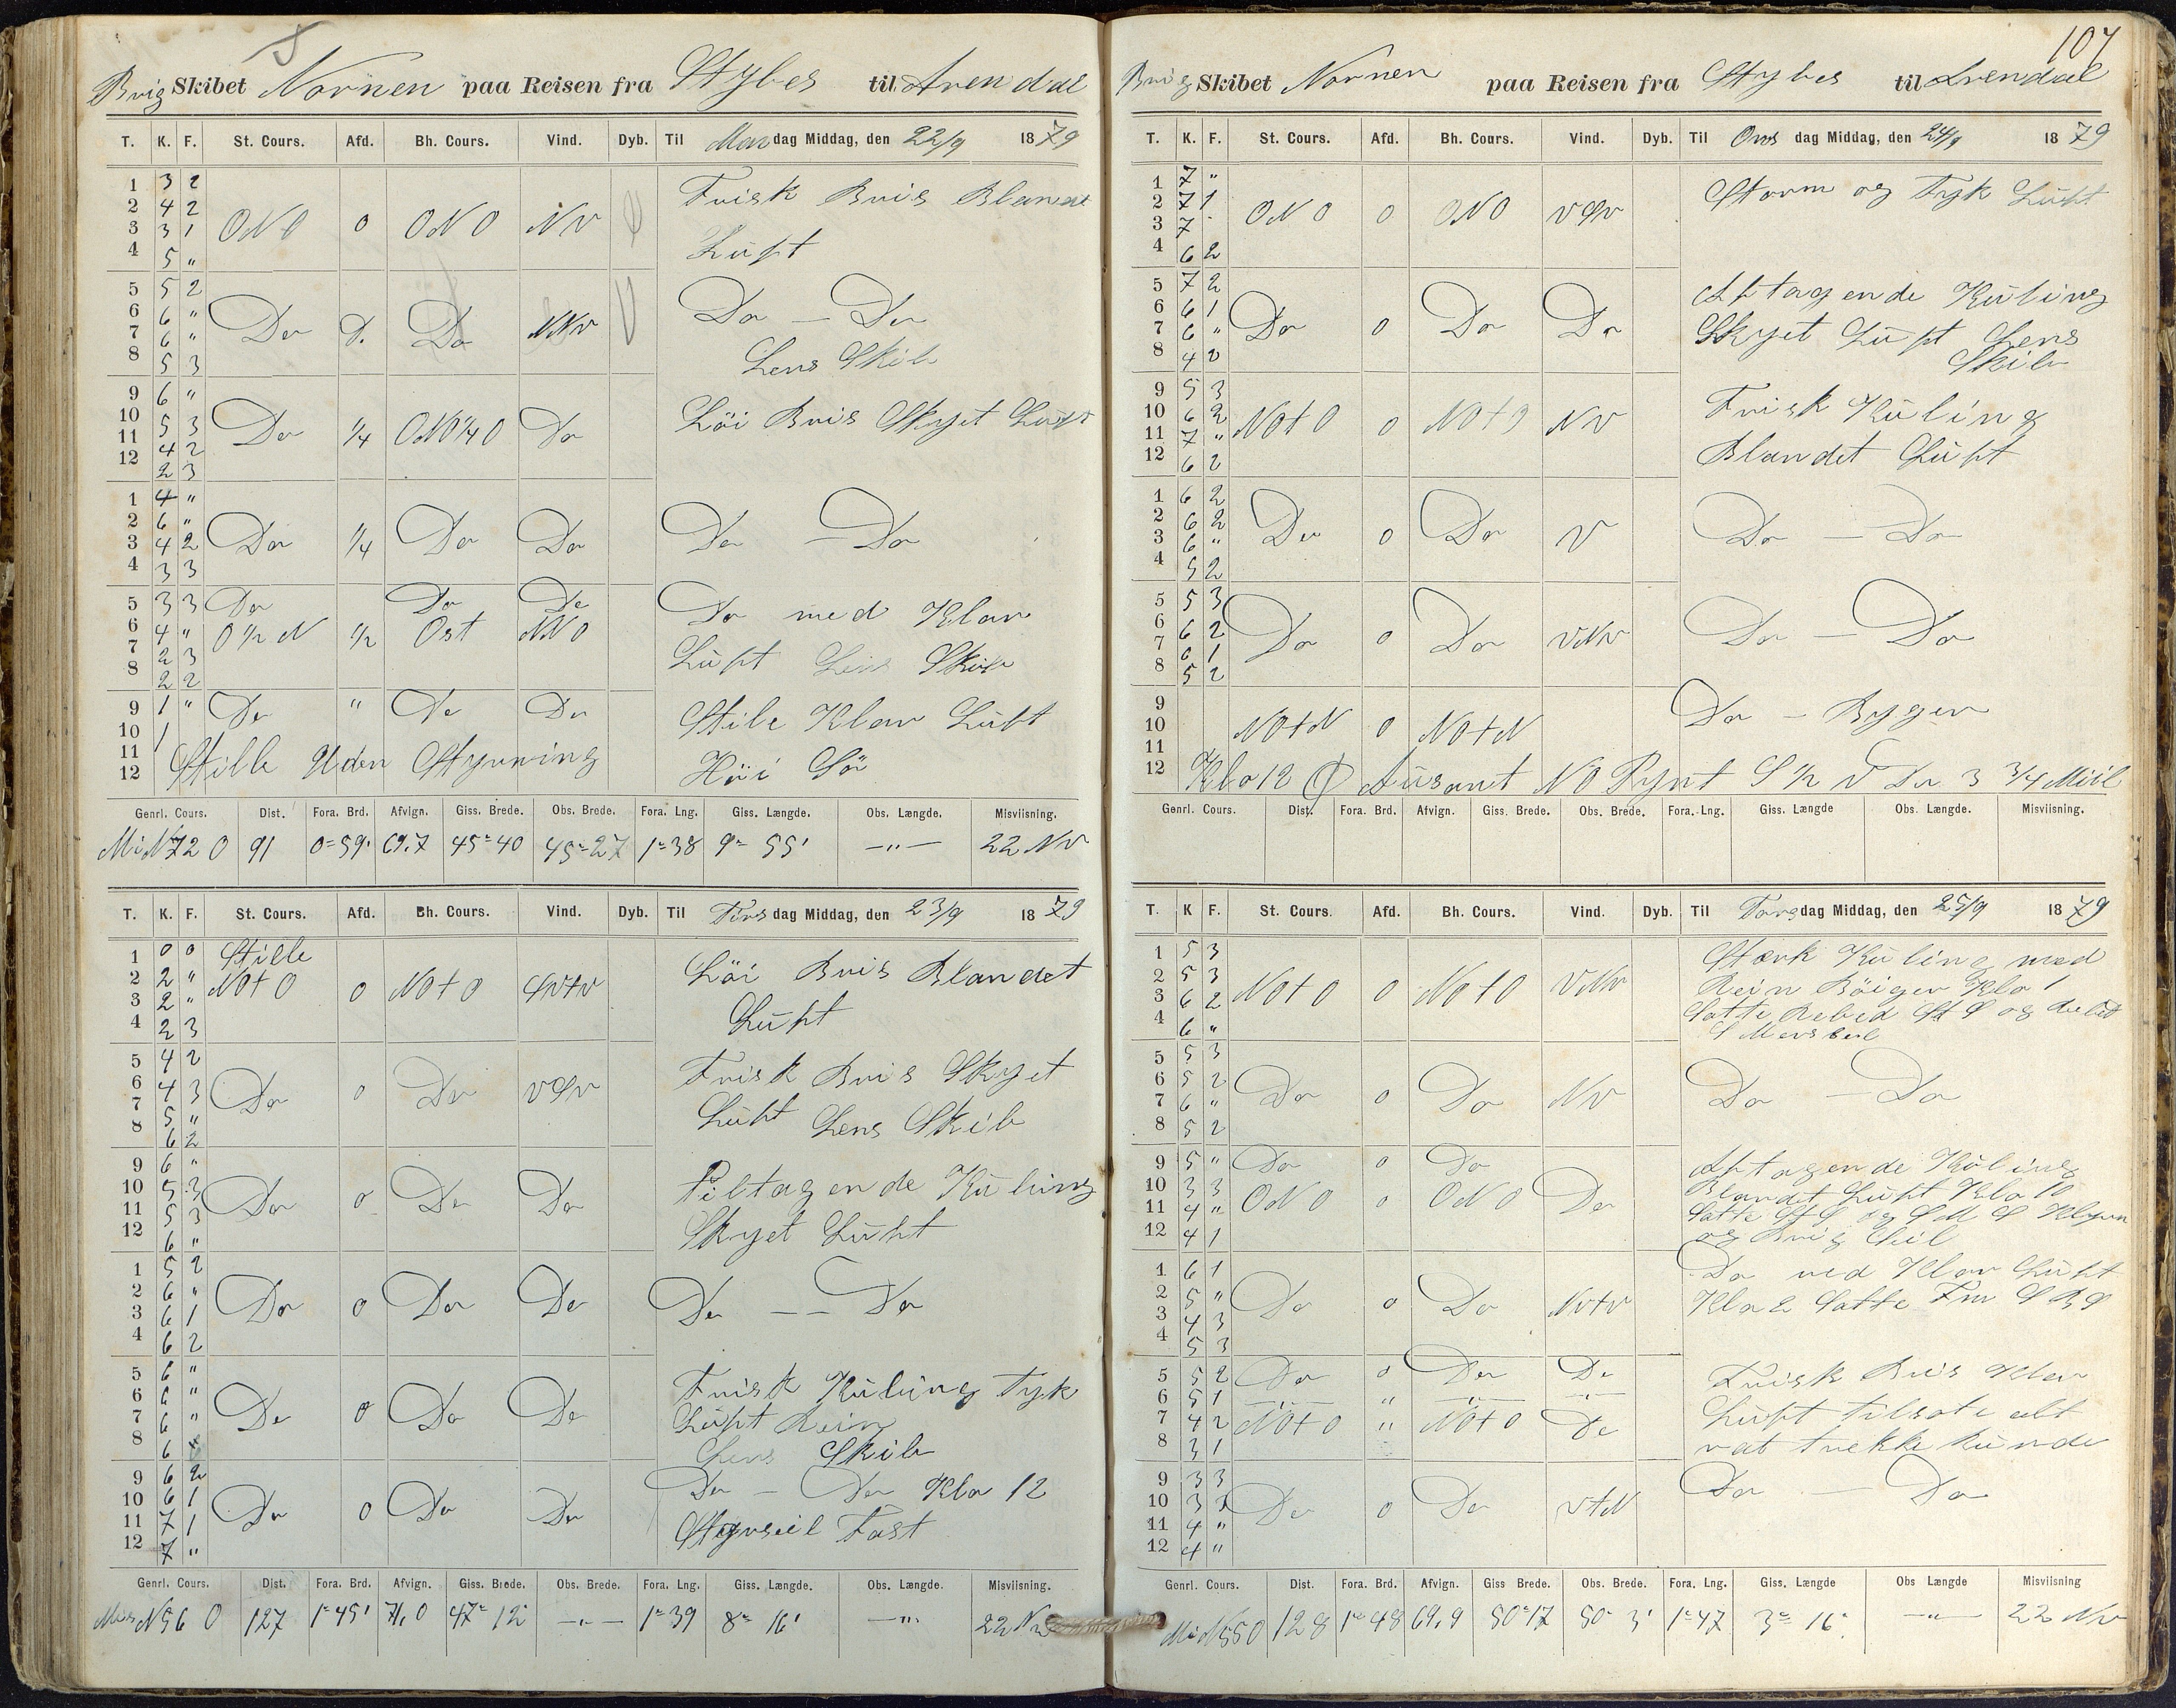 Brig Skibet Nornen paa Reisen fra Stybes til Arendal
T. K. F. St. Cours. Afd. Bh. Cours. Vind. Dyb. Til Mandag Middag, den 22/9 1879
1 3 2
2 4 2 Frisk Bris Blandet
3 3 1 ONO 0 ONO NV
4 5 " Luft
5 5 2
6 6 " Do — Do
7 6 " Do 0. Do NNV
8 5 3 Lens Skib
9 6 "
10 5 3 Löi Bris Skyet Luft
11 4 2 Do 1/4 ONO1/4O Do
12 2 3
1 4 "
2 6 "
3 4 2 Do 1/4 Do Do Do — Do
4 3 3
5 3 3 Do Do Do Do med Klar
6 4 " O1/2N 1/2 Ost NNO
7 2 3 Luft Lens Skib
8 2 2
9 1 " Do " Do Do Stile Klar Luft
10 1
11 Stille Uden Styrning Höi Sö
12
Genrl. Cours. Dist. Fora. Brd. Afvign. Giss. Brede. Obs. Brede. Fora. Lng. Giss. Længde. Obs. Længde. Misviisning.
Mis N72O 91 0=59' 69.7 45=40 45=27 1=38 9= 55' —"— 22 NV
T. K. F. St. Cours. Afd. Bh. Cours. Vind. Dyb. Til Tirsdag Middag, den 23/9 1879
1 0 0 Stille
2 2 " NOtO 0 NOtO SVtV Löi Bris Blandet
3 2 "
4 2 3 Luft
5 4 2 Frisk Bris Skyet
6 4 3 Do 0 Do VSV
7 5 " Luft Lens Skib
8 6 2
9 6 "
10 5 3 Do 0 Do Do Tiltagende Kuling
11 5 3
12 6 " Skyet Luft
1 5 2
2 6 "
3 6 1 Do 0 Do Do Do — — Do
4 6 2
5 6 " Frisk Kuling Tyk
6 6 " Do 0 Do Do Luft Rein
7 6 "
8 6 Lens Skib
9 6 2 Do — Do Klo 12
10 6 1 Do 0 Do Do
11 7 1 Fast
12 7 "
Genrl. Cours. Dist. Fora. Brd. Afvign. Giss. Brede. Obs. Brede. Fora. Lng. Giss. Længde. Obs. Længde. Misviisning.
Mis N56O 127 1=45' 71,0 47=12 —"— 1=39 8= 16' —"— 22 NV
107
Brig Skibet Nornen paa Reisen fra Stybes til Arendal
T. K. F. St. Cours. Afd. Bh. Cours. Vind. Dyb. Til Onsdag Middag, den 24/9 1879
1 7 "
2 7 1 ONO 0 ONO VSV Storm og Tyk Luft
3 7
4 6 2
5 7 2 Aftagende Kuling
6 6 1 Do 0 Do Do Skyet Luft Lens
7 6 "
8 4 2 Skib
9 5 3 Frisk Kuling
10 6 2 NOtO 0 NOtO NV
11 7 " Blandet Luft
12 6 2
1 6 2
2 6 2 Do 0 Do V Do — Do
3 6 "
4 5 2
5 5 3
6 6 2 Do 0 Do VNV Do — Do
7 6 1
8 5 2
9 Do — Bygen
10 NOtN 0 NOtN
11
12 Klo 12 NO Pynt S 1/2 V Do 3 3/4 Miil
Genrl. Cours. Dist. Fora. Brd. Afvign. Giss. Brede. Obs. Brede. Fora. Lng. Giss. Længde Obs. Længde. Misviisning.
T. K F. St. Cours. Afd. Bh. Cours. Vind. Dyb. Til Torsdag Middag, den 25/9 1879
1 5 3 Stærk Kuling med
2 5 3 NOtO 0 NOtO VNV Rein Böigen Klo 1
3 6 2 Satte Rebed St S og
4 6 " S Mersseil
5 5 3
6 5 2 Do 0 Do NV Do — Do
7 6 "
8 5 2
9 5 " Do 0 Do Aftagende Kuling
10 3 3 ONO 0 ONO Do Blandet Luft Klo 10
11 4 " Satte St S og S M S Klyver
12 4 1 og Brig Seil
1 6 1 Do med Klar Luft
2 5 " Do 0 Do NVtV Klo 2 Satte Fm S B S
3 4 3
4 5 3
5 5 2 Do 0 Do Do Frisk Bris Klar
6 5 1 —"— " —"— —"—
7 4 2 NOtO " NOtO Do Luft tilsate alt
8 3 1 vat trekke kunde
9 3 3 Do — Do
10 3 3 Do 0 Do VtN
11 4 "
12 4 "
Genrl. Cours. Dist. Fora. Brd. Afvign. Giss Brede. Obs. Brede. Fora. Lng. Giss. Længde Obs Længde Misviisning
Mis N55O 128 1=48 69,9 50=17 50= 3' 1=47 3= 16' —"— 22 NV